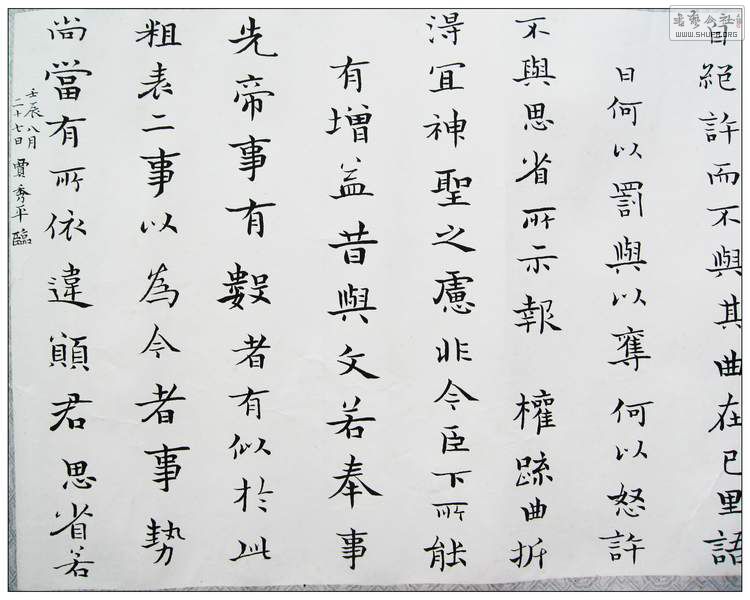 自絕許而不與其曲在己里語
曰何以罰與以奪何以怒許
不與思省所示報 權疏曲折
得宜神聖之慮非今臣下所能
有增益昔與文若奉事
先帝事有數者有似於此
粗表二事以為今者事勢
尚當有所依違願君思省若
壬辰八月
二十七日 賈秀平臨
書藝公社
WWW.SHUFA.ORG